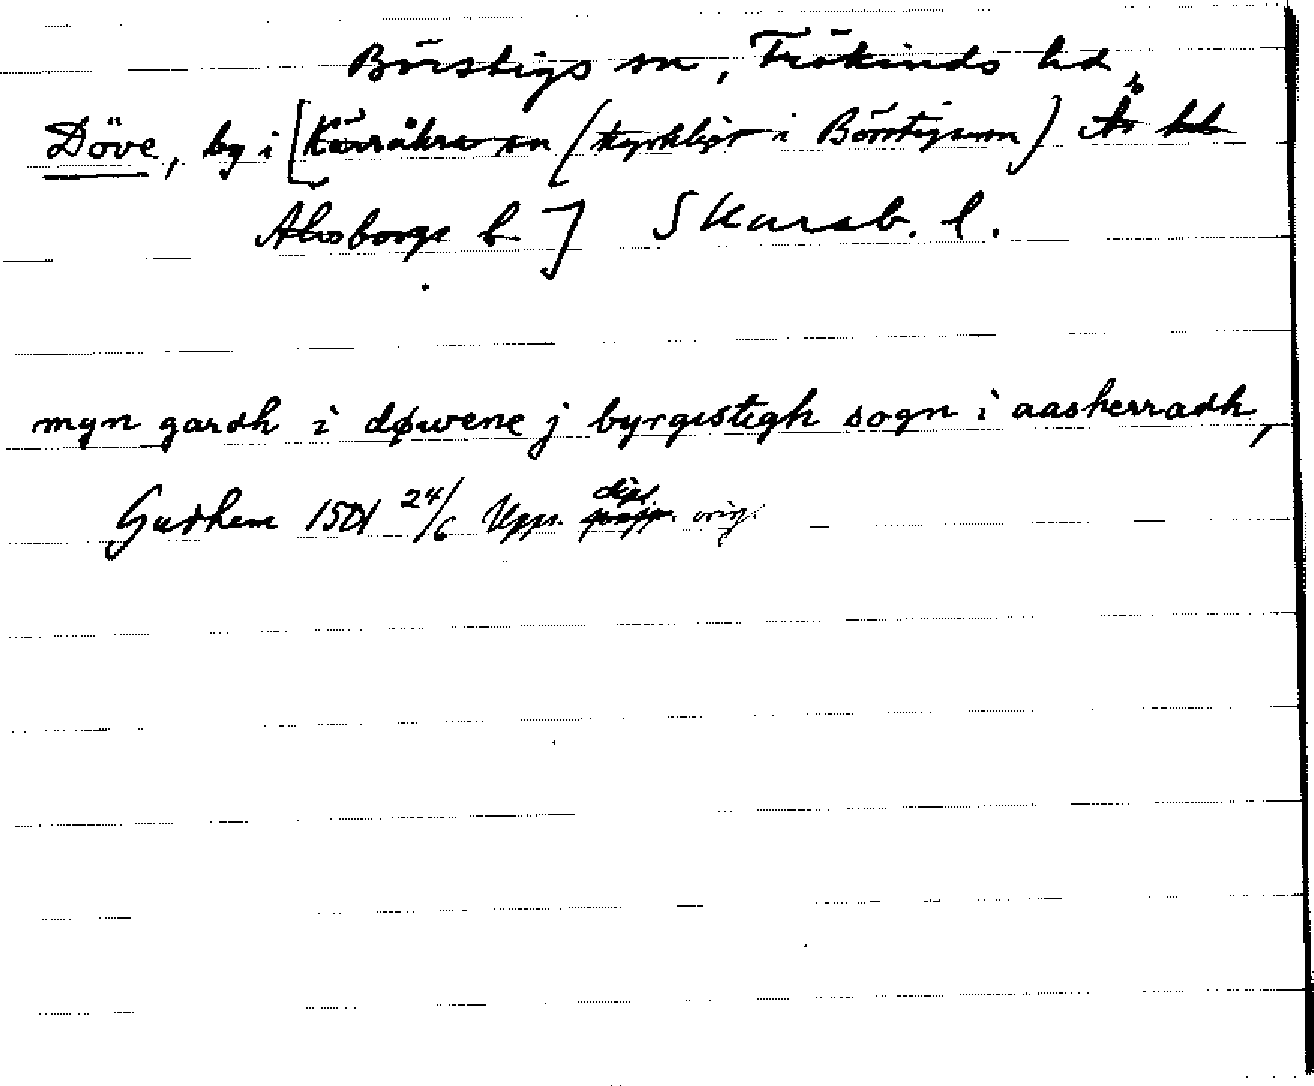 Börstigs sn, Frökinds hd,
Döve, by i [Kärråkra sn (kyrkligt i Börstig sn) Ås hd
Älvsborgs l.] Skarab. l.
myn gardh i døwene j byrgistegh sogn i aasherradh,
Gudhem 1501 24/6 Upps. dipl. orig.